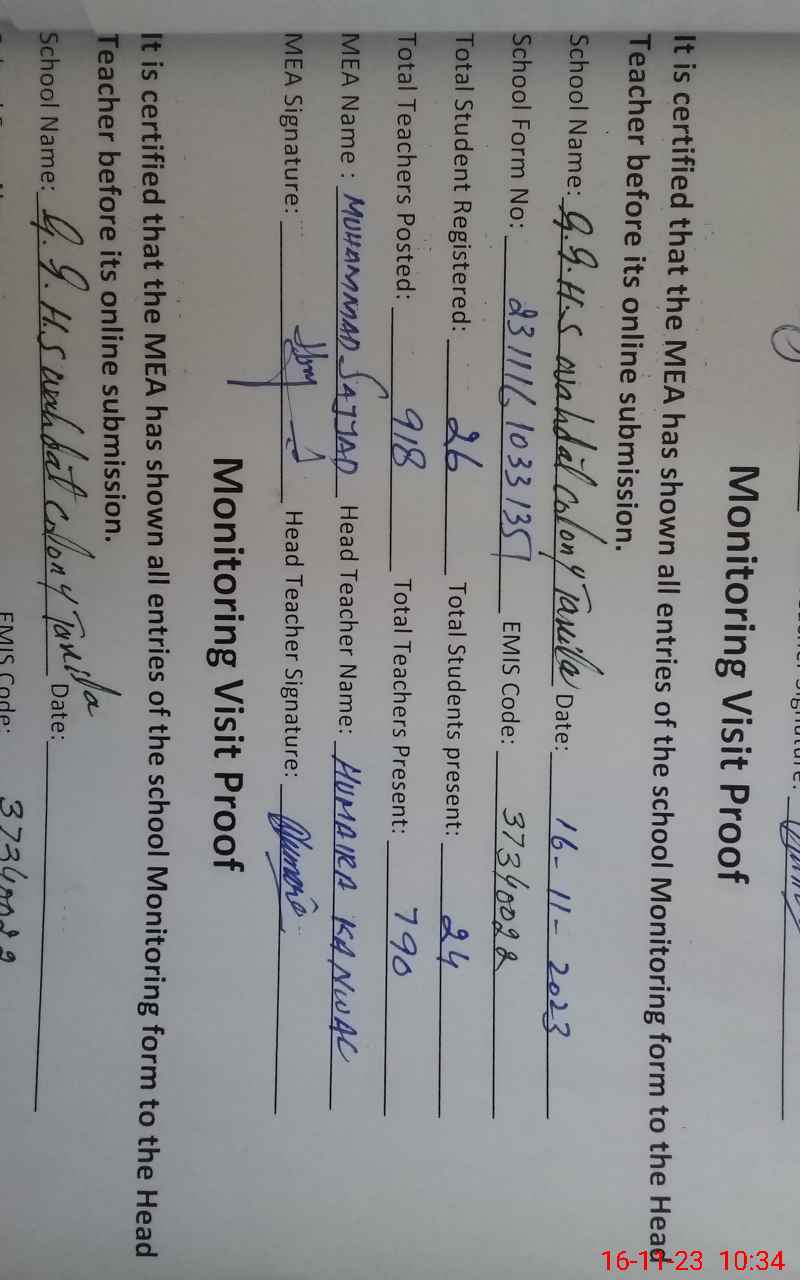 Signature:
Monitoring Visit Proof
It is certified that the MEA has shown all entries of the school Monitoring form to the Head
Teacher before its online submission.
School Name: G.G.H.S wahdat colony Taxila Date: 16-11-2023
School Form No: 231116 1033 1351 EMIS Code: 37340022
Total Student Registered: 26 Total Students present: 24
Total Teachers Posted: 918 Total Teachers Present: 790
MEA Name : MUHAMMAD SAJJAD Head Teacher Name: HUMAIRA KANWAL
MEA Signature: Head Teacher Signature:
Monitoring Visit Proof
It is certified that the MEA has shown all entries of the school Monitoring form to the Head
Teacher before its online submission.
School Name: G.G.H.S wahdat colony Taxila Date:
EMIS Code: 37340022
16-11-23 10:34